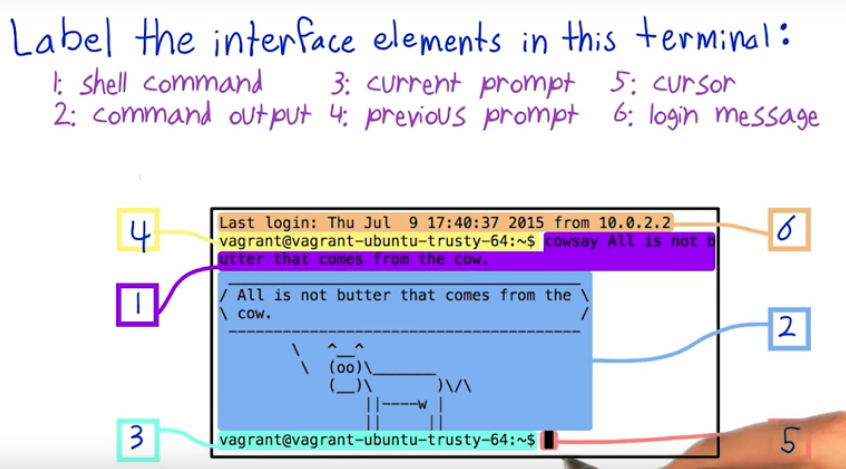 Label the interface elements in this terminal:
1: shell command 3: current prompt 5: cursor
2: command output 4: previous prompt 6: login message
4
Last login: Thu Jul  9 17:40:37 2015 from 10.0.2.2
6
vagrant@vagrant-ubuntu-trusty-64:~$ cowsay All is not b
utter that comes from the cow.
1
/ All is not butter that comes from the \
\ cow. /
2
\ ^__^
\ (oo)\_______
(__)\ )\/\
||----w |
|| ||
3
vagrant@vagrant-ubuntu-trusty-64:~$
5